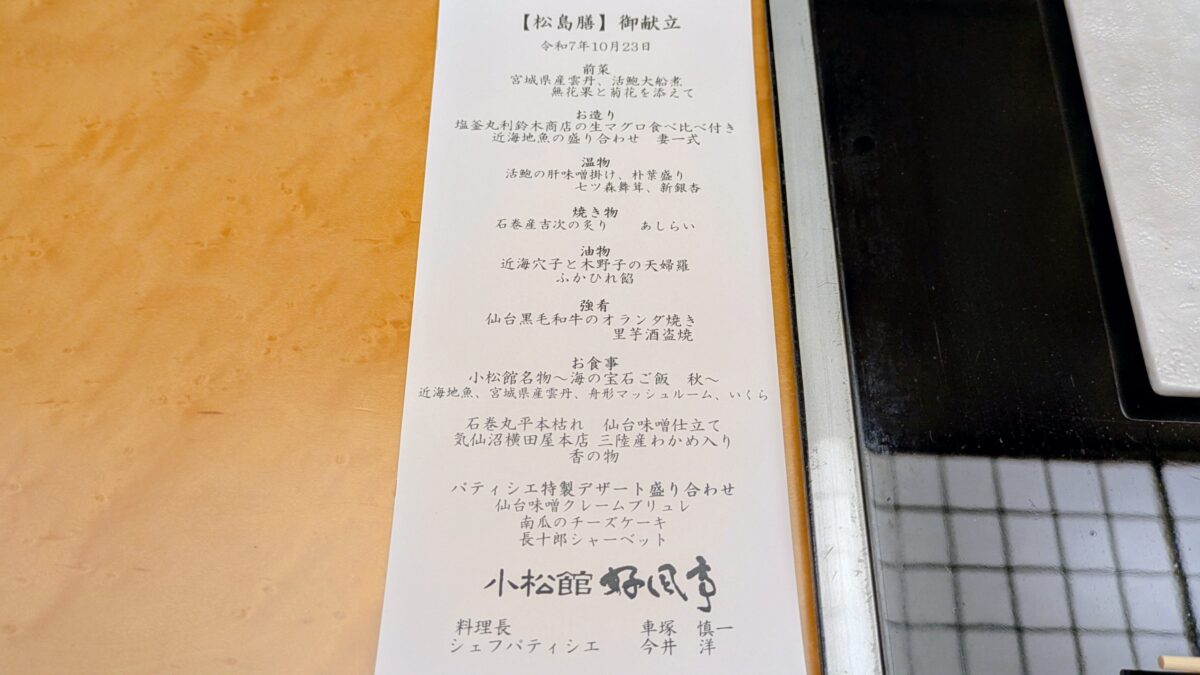 【松島膳】御献立
令和7年10月23日
前菜
宮城県産雲丹、活鮑大船煮
無花果と菊花を添えて
お造り
塩釜丸利鈴木商店の生マグロ食べ比べ付き
近海地魚の盛り合わせ　妻一式
温物
活鮑の肝味噌掛け、朴葉盛り
七ツ森舞茸、新銀杏
焼き物
石巻産吉次の炙り　あしらい
油物
近海穴子と木野子の天婦羅
ふかひれ餡
強肴
仙台黒毛和牛のオランダ焼き
里芋酒盗焼
お食事
小松館名物～海の宝石ご飯　秋～
近海地魚、宮城県産雲丹、舟形マッシュルーム、いくら
石巻丸平本枯れ　仙台味噌仕立て
気仙沼横田屋本店 三陸産わかめ入り
香の物
パティシエ特製デザート盛り合わせ
仙台味噌クレームブリュレ
南瓜のチーズケーキ
長十郎シャーベット
小松館 好風亭
料理長　車塚　慎一
シェフパティシエ　今井　洋